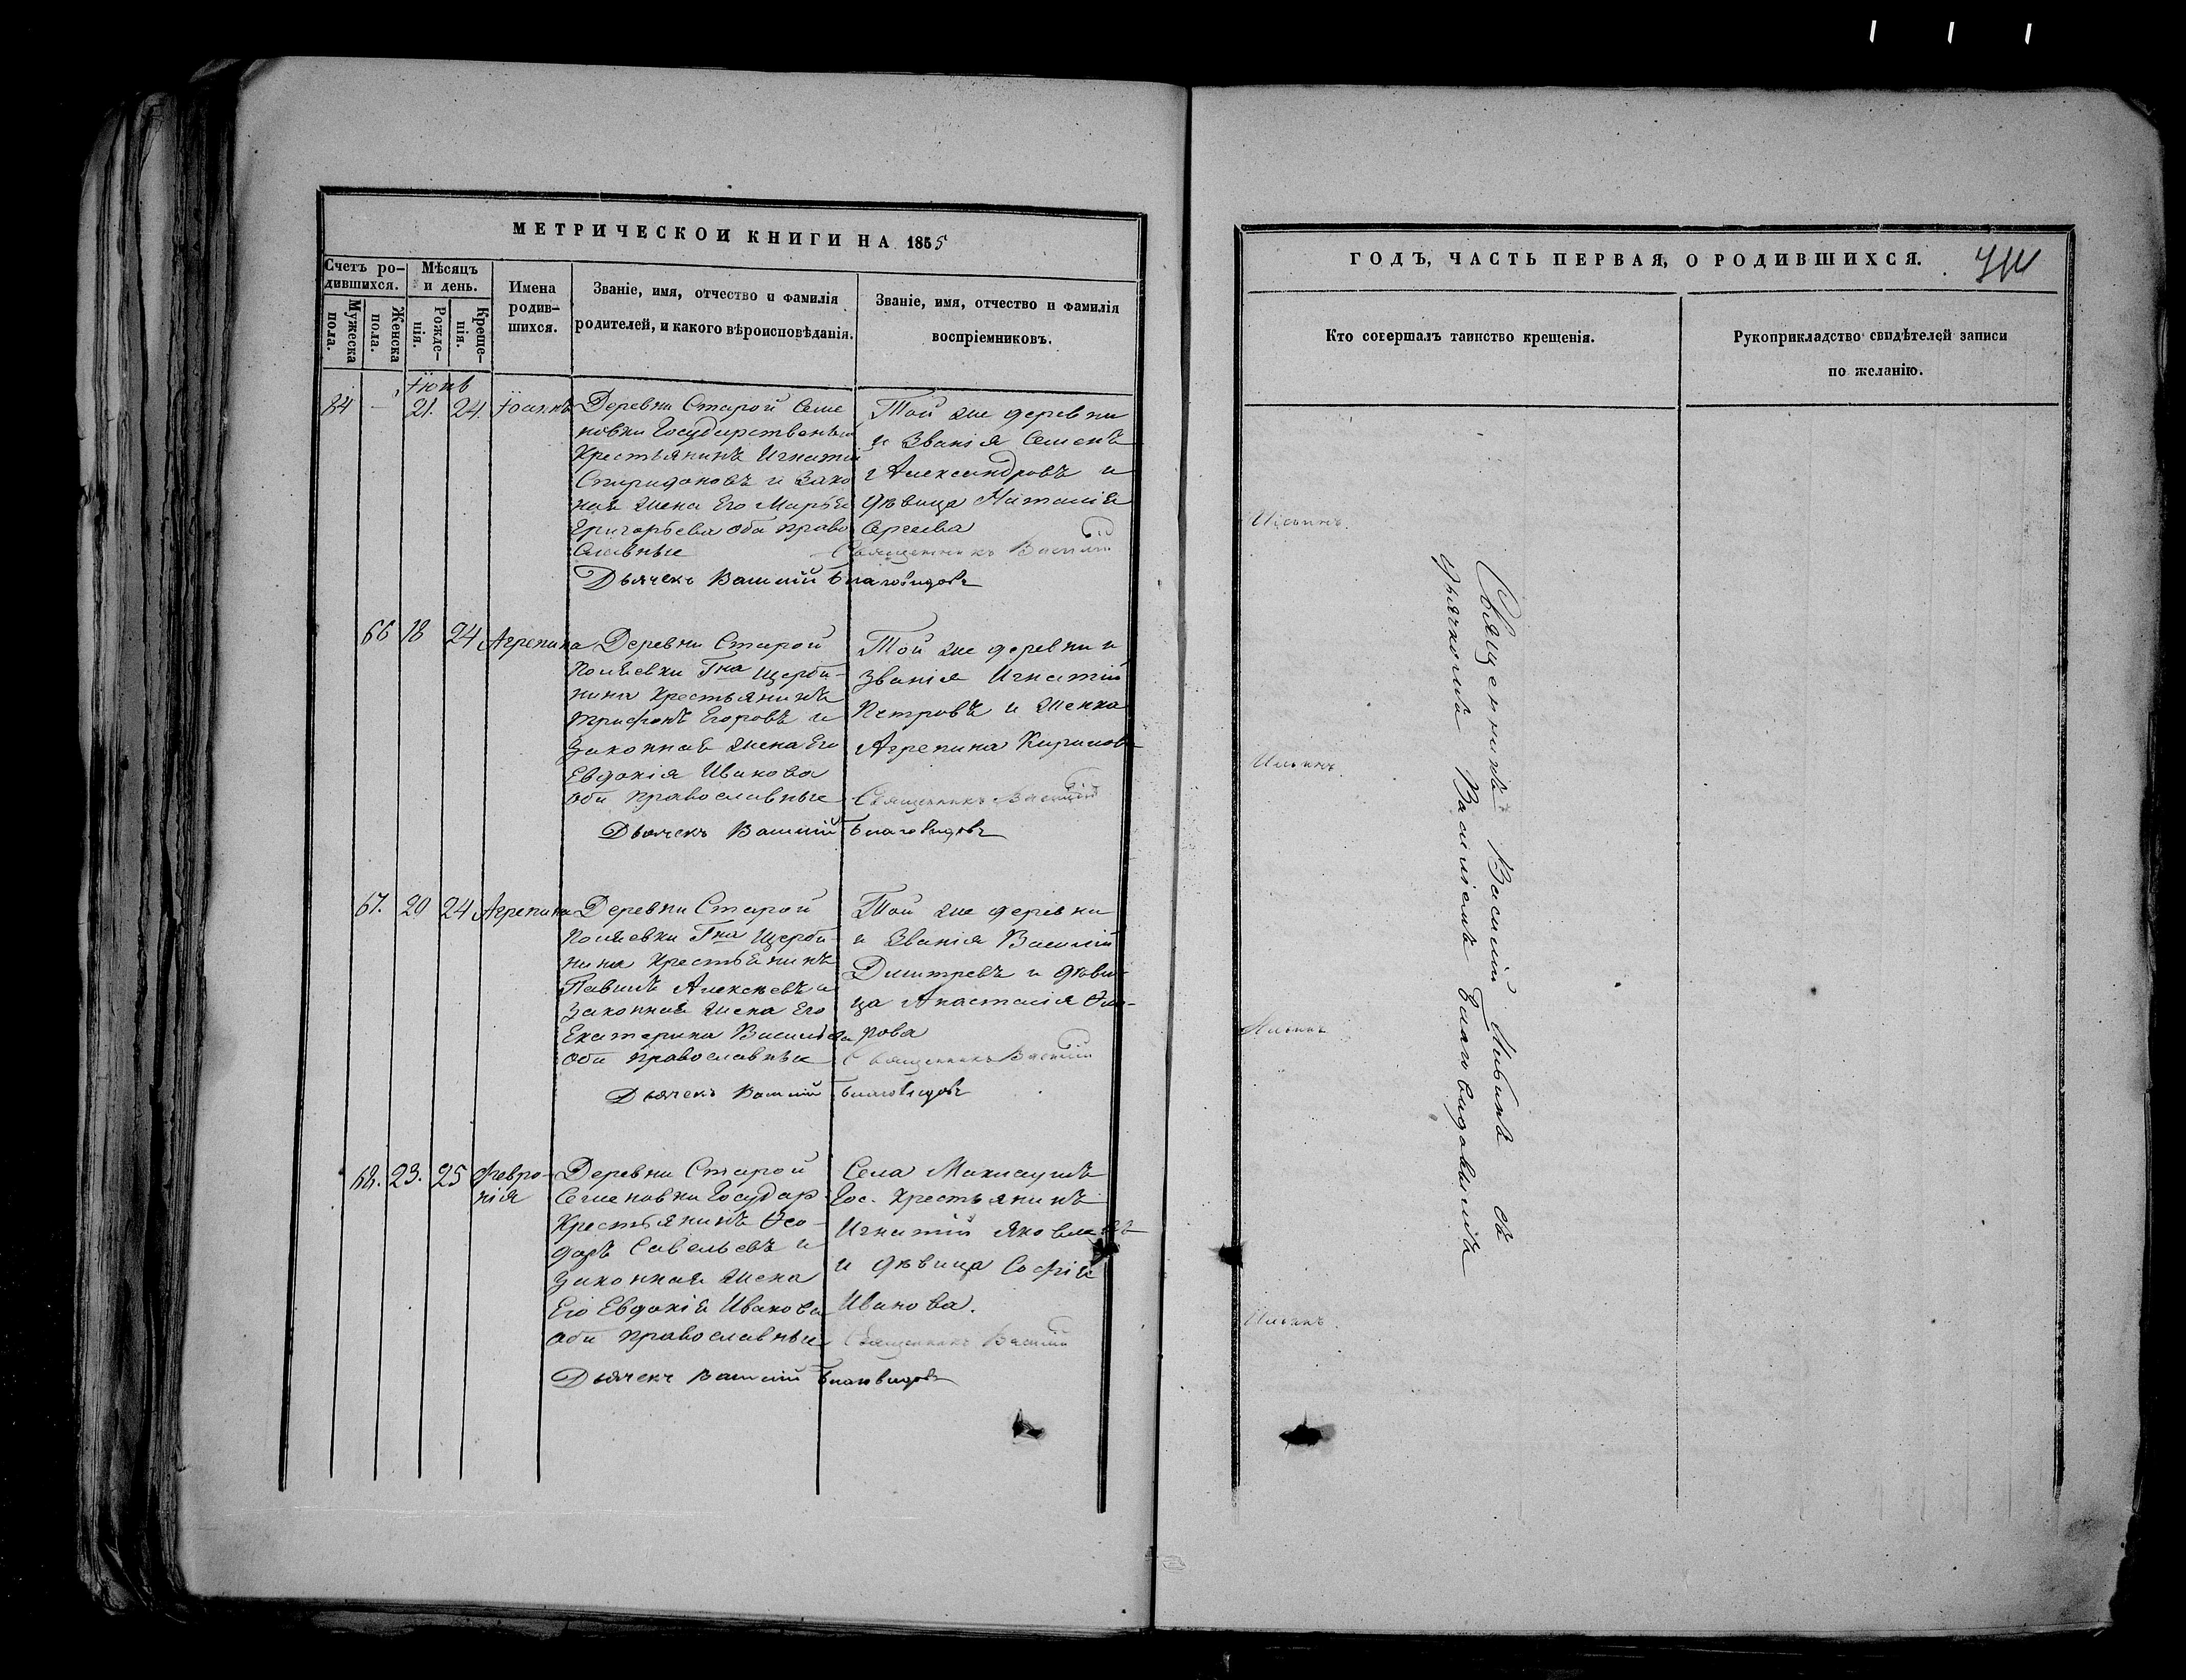 МЕТРИЧЕСКОЙ КНИГИ НА 1855
Счетъ ро-
дившихся.
Мѣсяцъ
и день.
Мужеска
пола.
Женска
пола.
Рожде-
нія.
Креще-
нія.
Имена
родив-
шихся.
Званіе, имя, отчество и фамилія
родителей, и какого вѣроисповѣданія.
Званіе, имя, отчество и фамилія
воспріемниковъ.
Іюнь
84 — 21. 24. Іоаннъ
Деревни Старой Семе
новки Государственный
Крестьянинъ Игнатій
Спиридоновъ и Зако
ная жена Его Марья
Григорьева оба право
славные
Той же деревни
и Званія Семенъ
Александровъ и
дѣвица Наталія
Сергеева
Священникъ Василій
Дьячекъ Василій Благовидовъ
66 18 24 Агрепина
Деревни Старой
Гна Щерба-
нина Крестьянинъ
Трифонъ Егоровъ и
Законная жена Его
Евдокія Иванова
оба православные
Той же деревни и
Званія Игнатій
Петровъ и женка
Агрепина Кирилов
Священникъ Василій
Дьячекъ Василій Благовидовъ
67. 20 24 Агрепина
Деревни Старой
Гна Щерба-
нина Крестьянинъ
Павилъ Алексѣевъ и
Законная жена Его
Екатерина Васильева
оба православные
Той же деревни
и Званія Василій
Дмитревъ и дѣви-
ца Анастасія Ѳео-
рова
Священникъ Василій
Дьячекъ Василій Благовидовъ
68. 23. 25 Февро-
нія
Деревни Старой
Семеновки Государ
Крестьянинъ Ѳео-
доръ Савельевъ и
Законная жена
Его Евдокія Иванова
оба православные
Села Маклаушъ
Гос. Крестьянинъ
Игнатій Яковлевъ
и дѣвица Софія
Иванова.
Священникъ Василій
Дьячекъ Василій Благовидовъ
ГОДЪ, ЧАСТЬ ПЕРВАЯ, О РОДИВШИХСЯ.
Кто совершалъ таинство крещенія.
Рукоприкладство свидѣтелей записи
по желанію.
Священникъ Василій съ
дьячкомъ Василіемъ Благовидовымъ